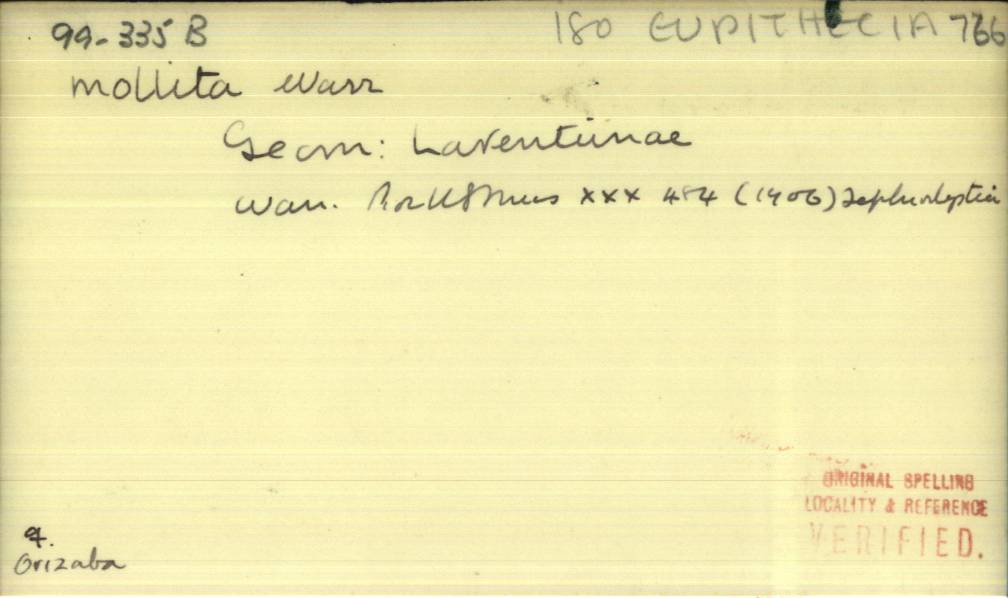 99-335 B
180 EUPITHECIA 766
mollita Warr
Geom: Larentiinae
Warr. Pr U S Mus xxx 484 (1906) Tephroclystia
ORIGINAL SPELLING
LOCALITY & REFERENCE
VERIFIED.
Orizaba